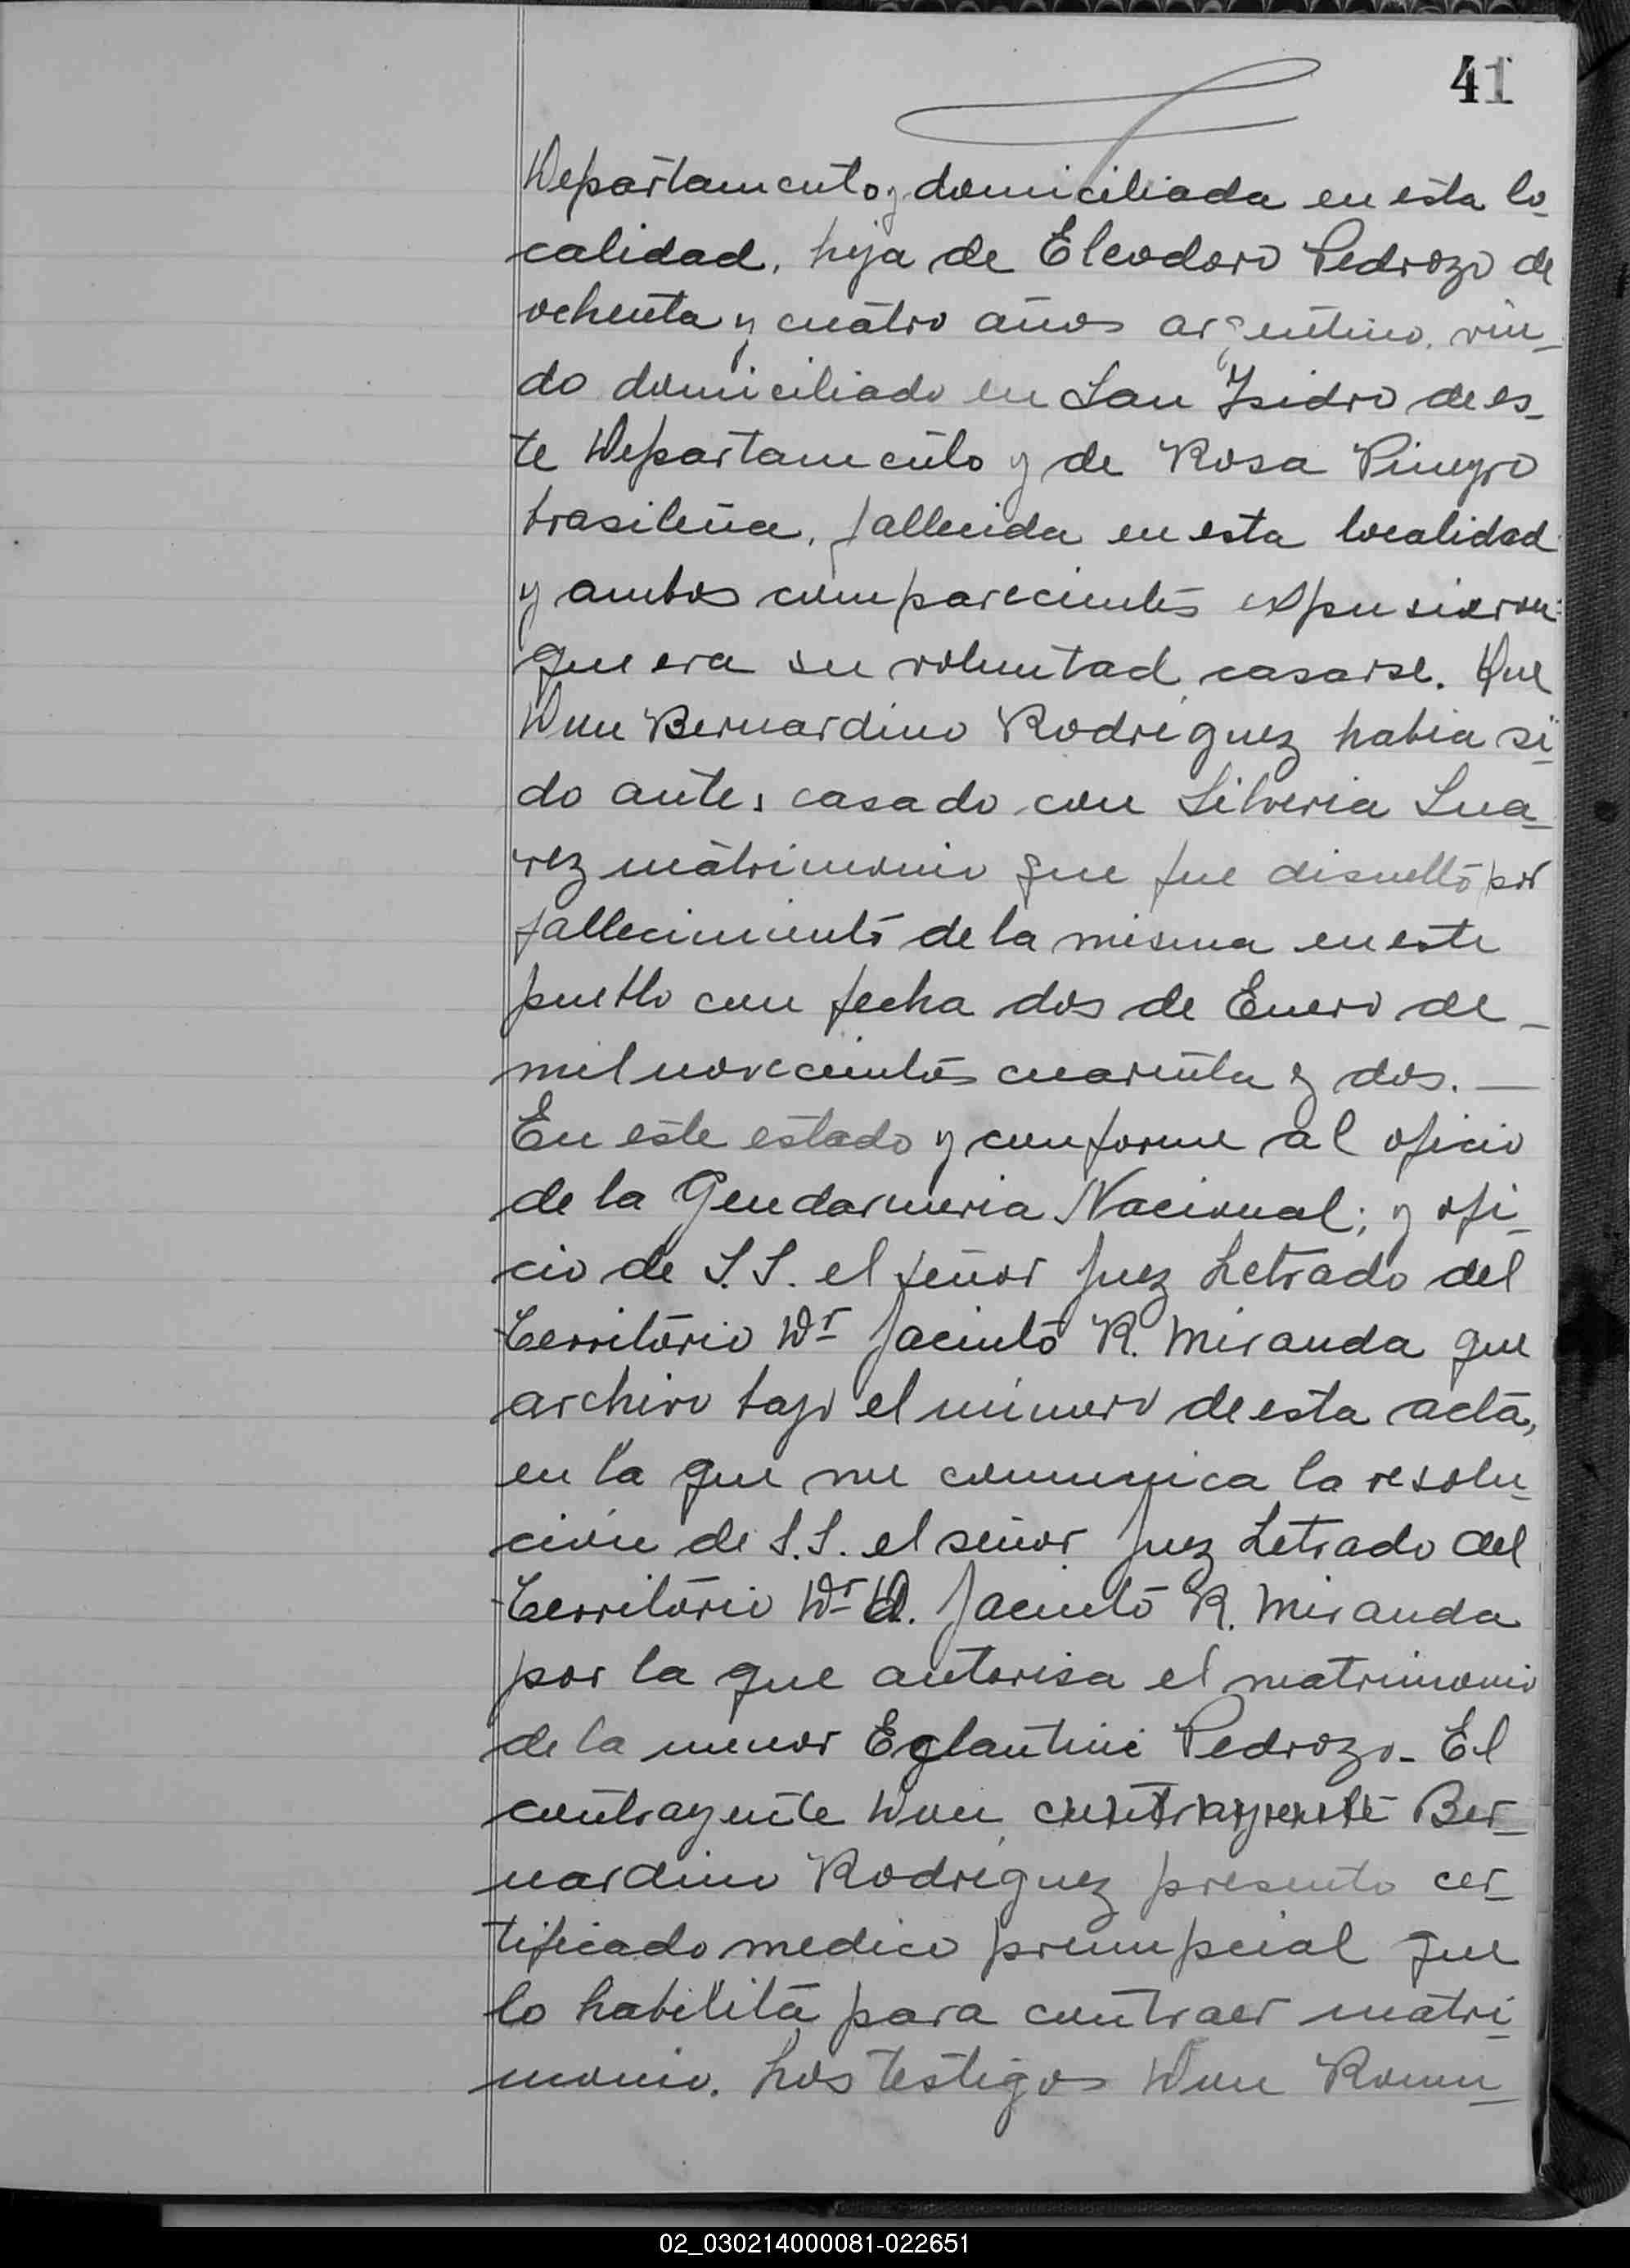 41
Departamento y domiciliada en esta lo-
calidad, hija de Eleodoro Pedrozo de
ochenta y cuatro años argentino, viu-
do domiciliado en San Isidro de es-
te Departamento y de Rosa Pineyro
brasileña, fallecida en esta localidad
y ambos comparecientes expusieron:
que era su voluntad casarse. Que
Don Bernardino Rodriguez habia si-
do antes casado con Silveria Sua-
rez matrimonio que fue disuelto por
fallecimiento de la misma en este
pueblo con fecha dos de Enero de -
mil novecientos cuarenta y dos. —
En este estado y conforme al oficio
de la Gendarmeria Nacional; y ofi-
cio de S.S. el señor Juez Letrado del
Territorio Dr Jacinto R. Miranda que
archivo bajo el número de esta acta,
en la que me comunica la resolu-
ción de S.S. el señor Juez Letrado del
Territorio Dr D. Jacinto R. Miranda
por la que autorisa el matrimonio
de la menor Eglantine Pedrozo - El
contrayente Don contrayente Ber-
nardino Rodriguez presento cer-
tificado medico prenupcial que
lo habilita para contraer matri-
monio. Los testigos Don Romu-
02_030214000081-022651